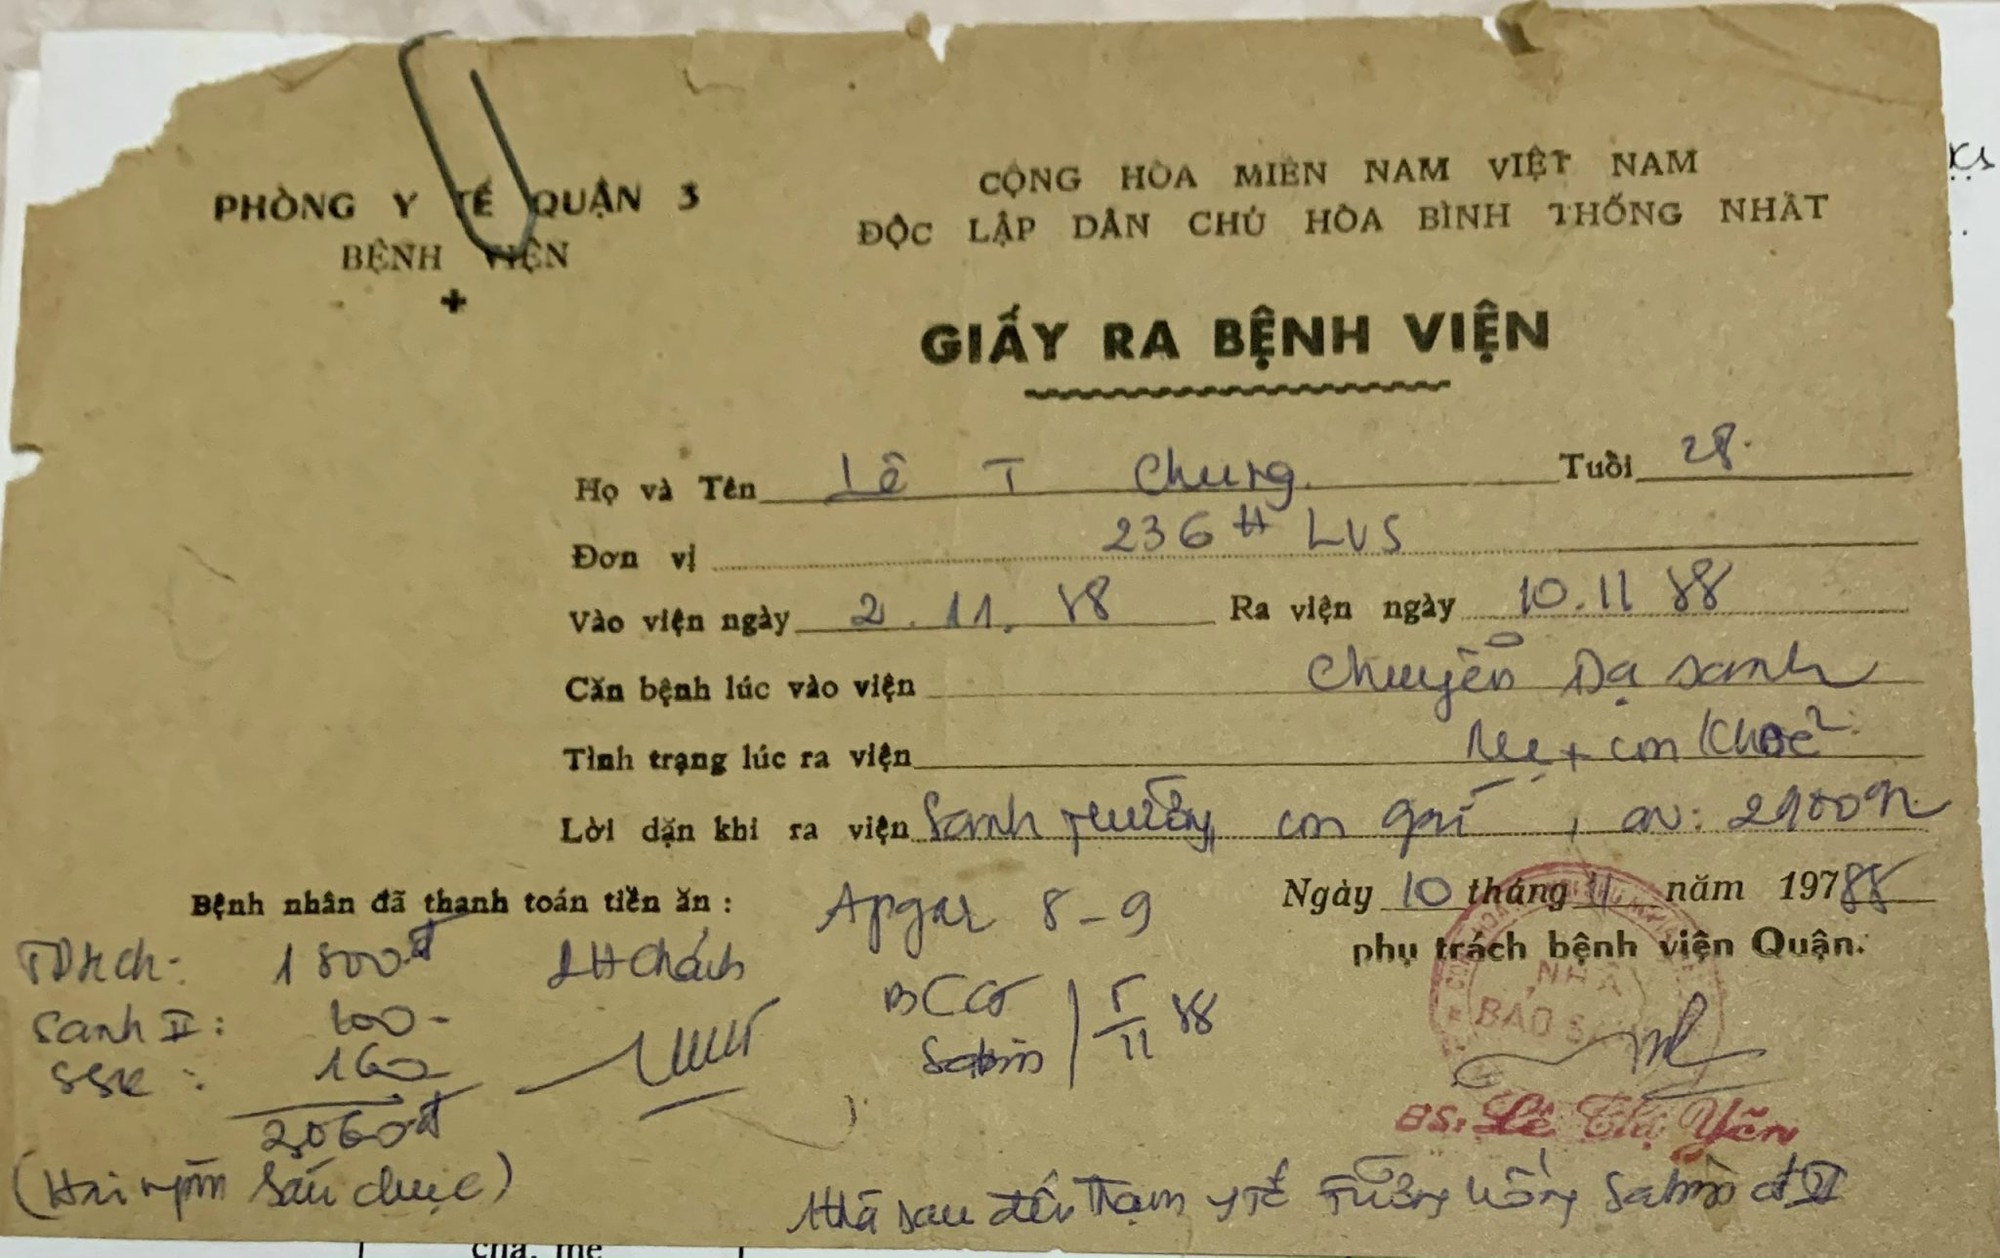 PHÒNG Y TẾ QUẬN 3
BỆNH VIỆN
+
CỘNG HÒA MIỀN NAM VIỆT NAM
ĐỘC LẬP DÂN CHỦ HÒA BÌNH THỐNG NHẤT
GIẤY RA BỆNH VIỆN
Họ và Tên Lê T Chung Tuổi 28.
Đơn vị 236 # LVS
Vào viện ngày 2.11.88 Ra viện ngày 10.11 88
Căn bệnh lúc vào viện Chuyển Dạ sanh
Tình trạng lúc ra viện Mẹ + con Khoẻ
Lời dặn khi ra viện Sanh thường con gái, CN: 2900g
Bệnh nhân đã thanh toán tiền ăn : Apgar 8-9
Ngày 10 tháng 11 năm 19788
phụ trách bệnh viện Quận.
1800đ
Sanh II: 100-
160
2,060đ
(Hai ngàn Sáu chục)
BCG
Sabin 5/11 88
NHÀ
BẢO SANH
BS: Lê Thị Yến
sau đến Trạm y tế Phường uống Sabin đ II